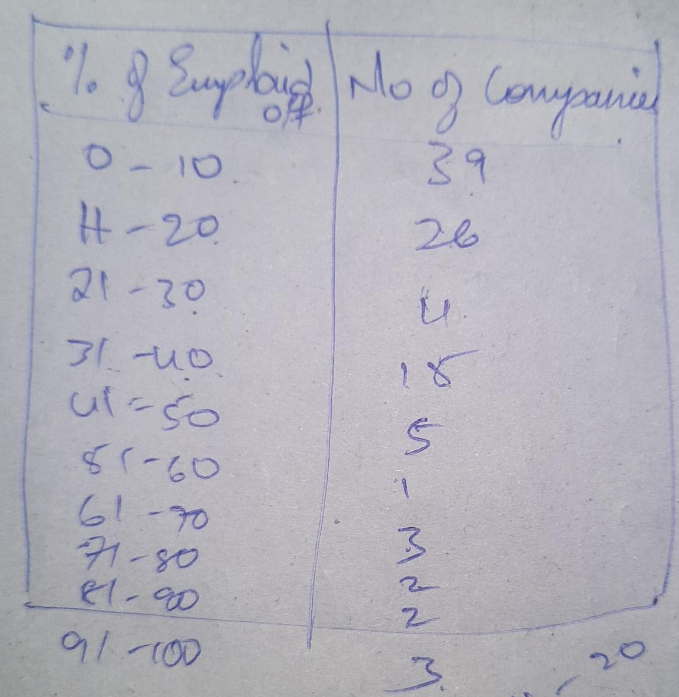 % of Emp laid off. No of Companies
0 - 10 39
11 - 20 26
21 - 30 4
31 - 40 15
41 - 50 5
51 - 60 1
61 - 70 3
71 - 80 2
81 - 90 2
91 - 100 3
20